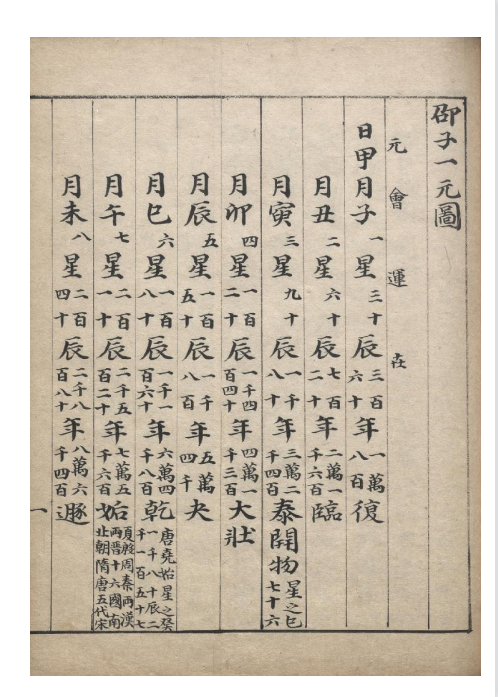 邵子一元圖
元會運卋
日甲月子一星三十辰三百六十年一萬八百復
月丑二星六十辰七百二十年二萬一千六百臨
月寅三星九十辰一千八十年三萬二千四百泰開物星之巳七十六
月卯四星一百二十辰一千四百四十年四萬一千三百大壯
月辰五星一百五十辰一千八百年五萬四千夬
月巳六星一百八十辰一千一百六十年六萬四千八百乾唐堯始星之癸一千八十辰二千一百五十七
月午七星二百一十辰二千五百二十年七萬五千六百姤夏殷周秦兩漢兩晉十六國南北朝隋唐五代宋
月未八星二百四十辰二千八百八十年八萬六千四百遯
一